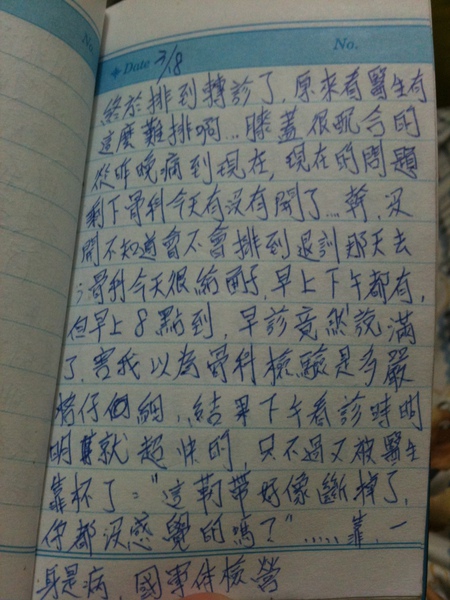 No.
Date 3/8
No.
終於排到轉診了，原來看醫生有
這麼難排啊...膝蓋很配合的
從昨晚痛到現在，現在的問題
剩下骨科今天有沒有開了...幹，沒
開不知道會不會排到退訓那天去
；骨科今天很給面子，早上下午都有，
但早上8點到，早診竟然說滿
了，害我以為骨科檢驗是多嚴
格仔細，結果下午看診時明
明就超快的，只不過又被醫生
靠杯了。"這韌帶好像斷掉了，
你都沒感覺的嗎？".....靠，一
身是病，國軍体檢營